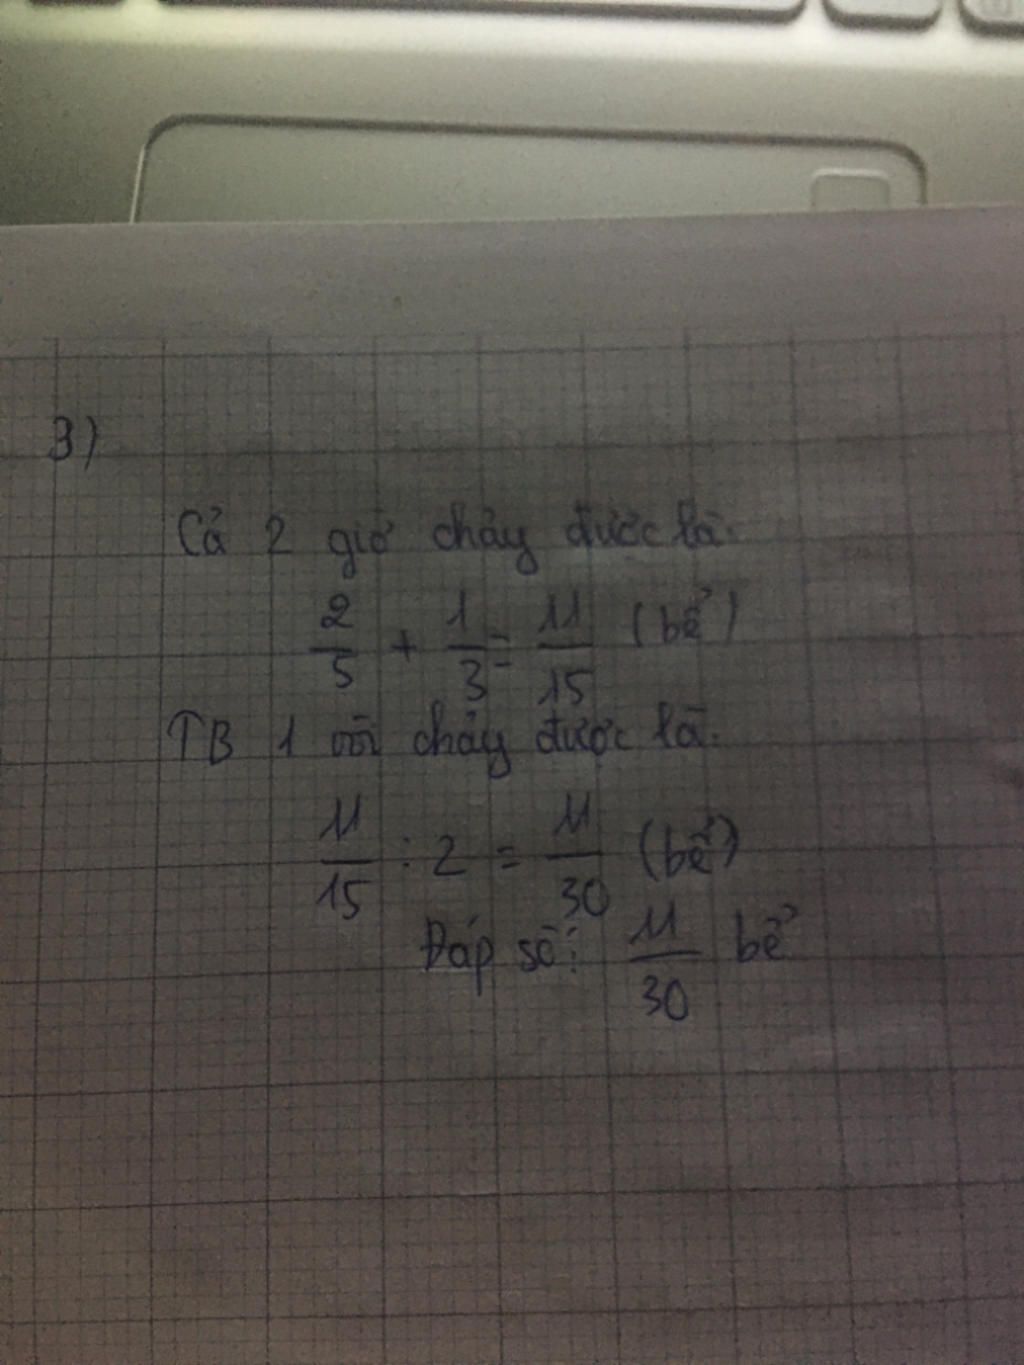 3)
Cả 2 giờ chảy được là:
2/5 + 1/3 = 11/15 (bể)
TB 1 vòi chảy được là:
11/15 : 2 = 11/30 (bể)
Đáp số: 11/30 bể